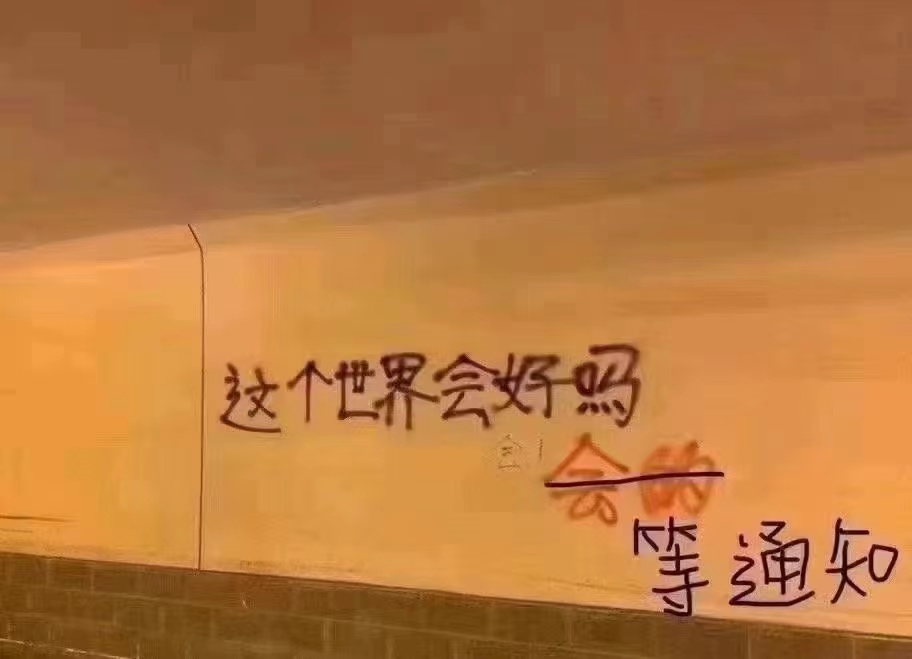 这个世界会好吗
会!
会的
等通知